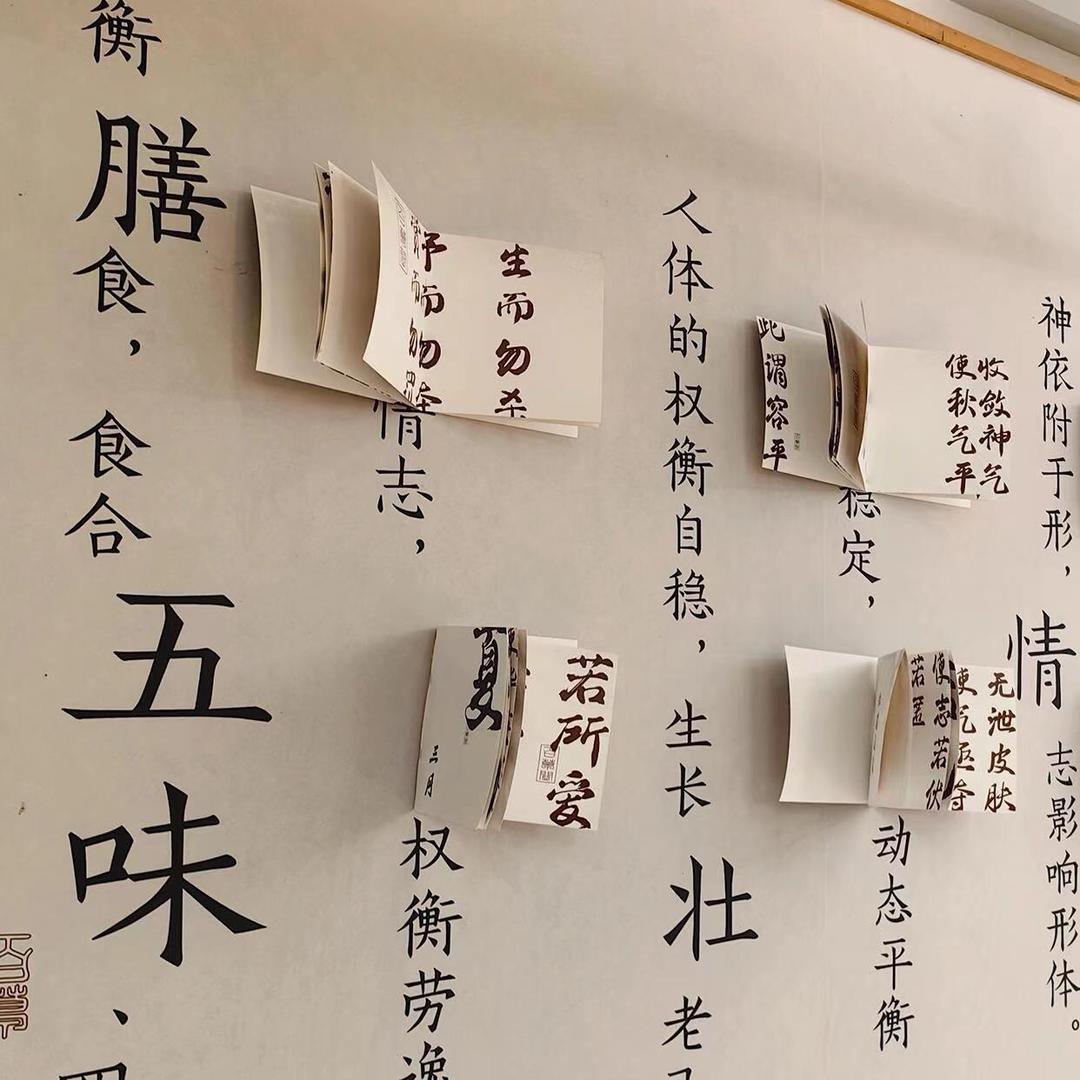 神依附于形，情志影响形体。
收敛神气
使秋气平
此谓容平
稳定，
无泄皮肤
使气亟夺
使志若伏
若匿
动态平衡
人体的权衡自稳，生长壮老
生而勿杀
予而勿夺
而勿
情志，
若所爱
夏三月
权衡劳逸
衡膳食，食合五味、